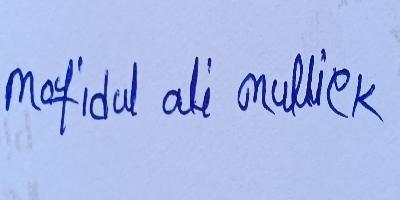 Mofidul ali mullick